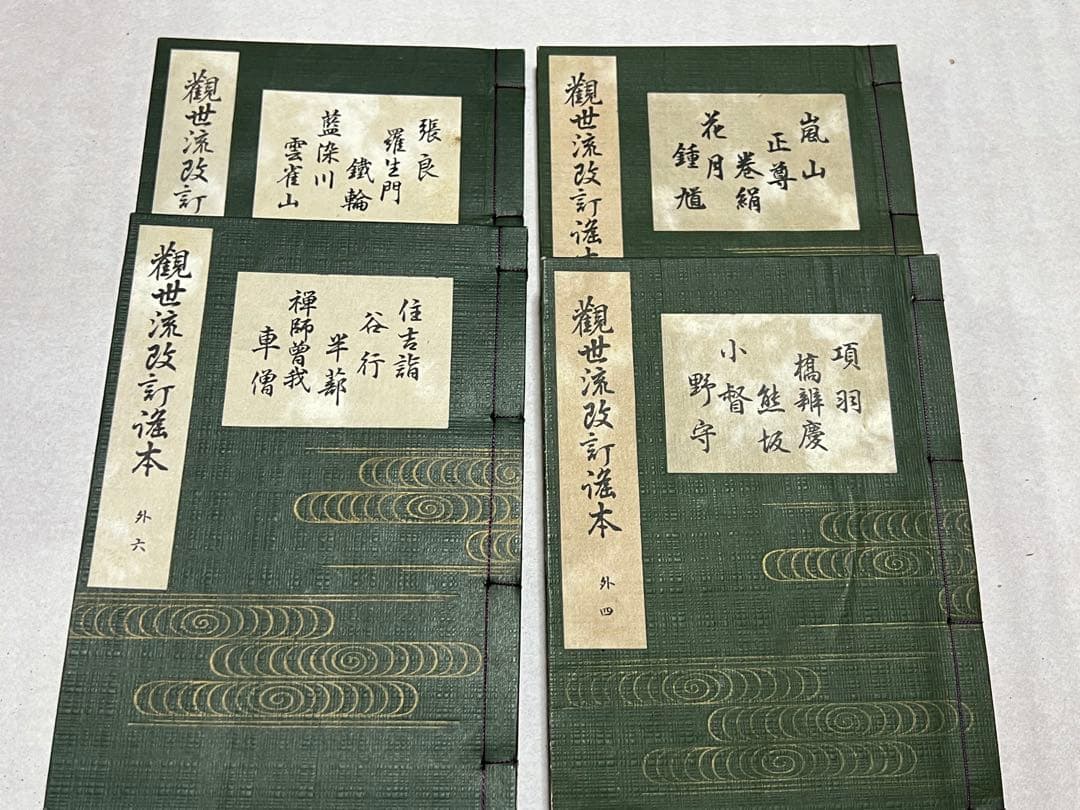 觀世流改訂
張良
羅生門
鐵輪
藍染川
雲雀山
觀世流改訂謠本
嵐山
正尊
巻絹
花月
鍾馗
觀世流改訂謠本
外六
住吉詣
谷行
半蔀
禅師曾我
車僧
觀世流改訂謠本
外四
項羽
橋辨慶
熊坂
小督
野守